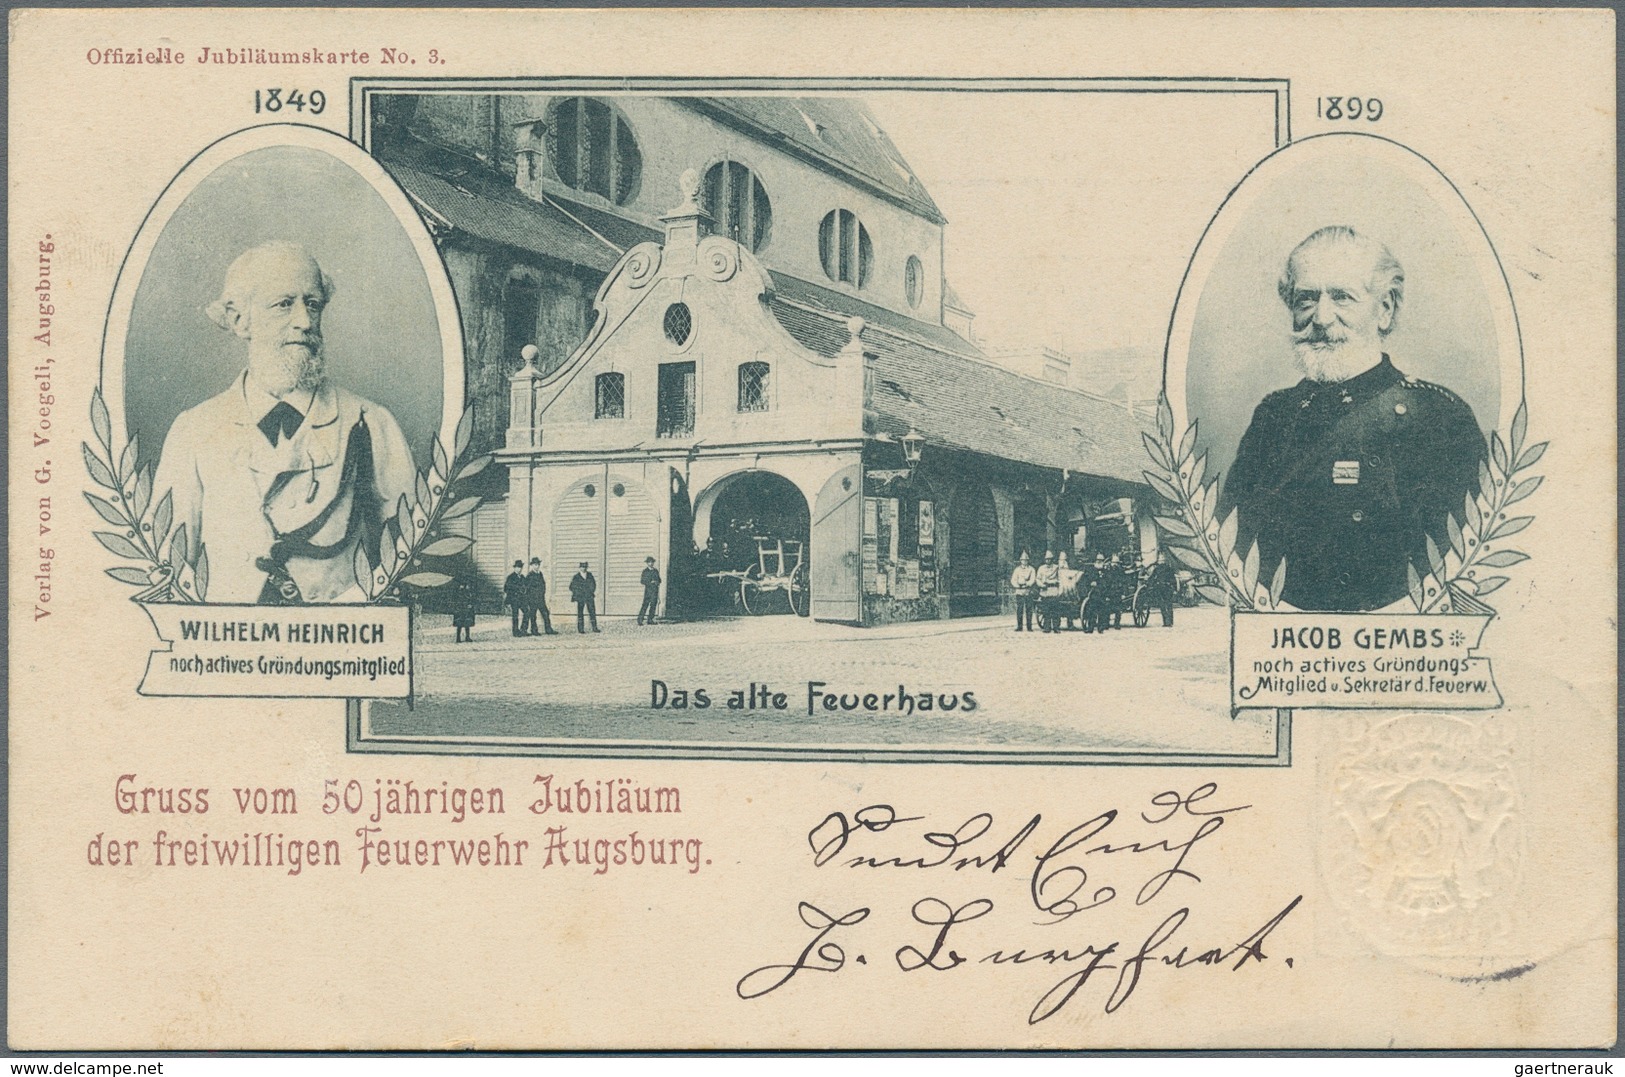 Offizielle Jubiläumskarte No. 3.
1849
1899
Verlag von G. Voegeli, Augsburg.
WILHELM HEINRICH
noch actives Gründungsmitglied
JACOB GEMBS
noch actives Gründungs-
Mitglied u. Sekretär d. Feuerw.
Das alte Feuerhaus
Gruss vom 50 jährigen Jubiläum
der freiwilligen Feuerwehr Augsburg.
Sendet Euch
delcampe.net
gaertnerauk